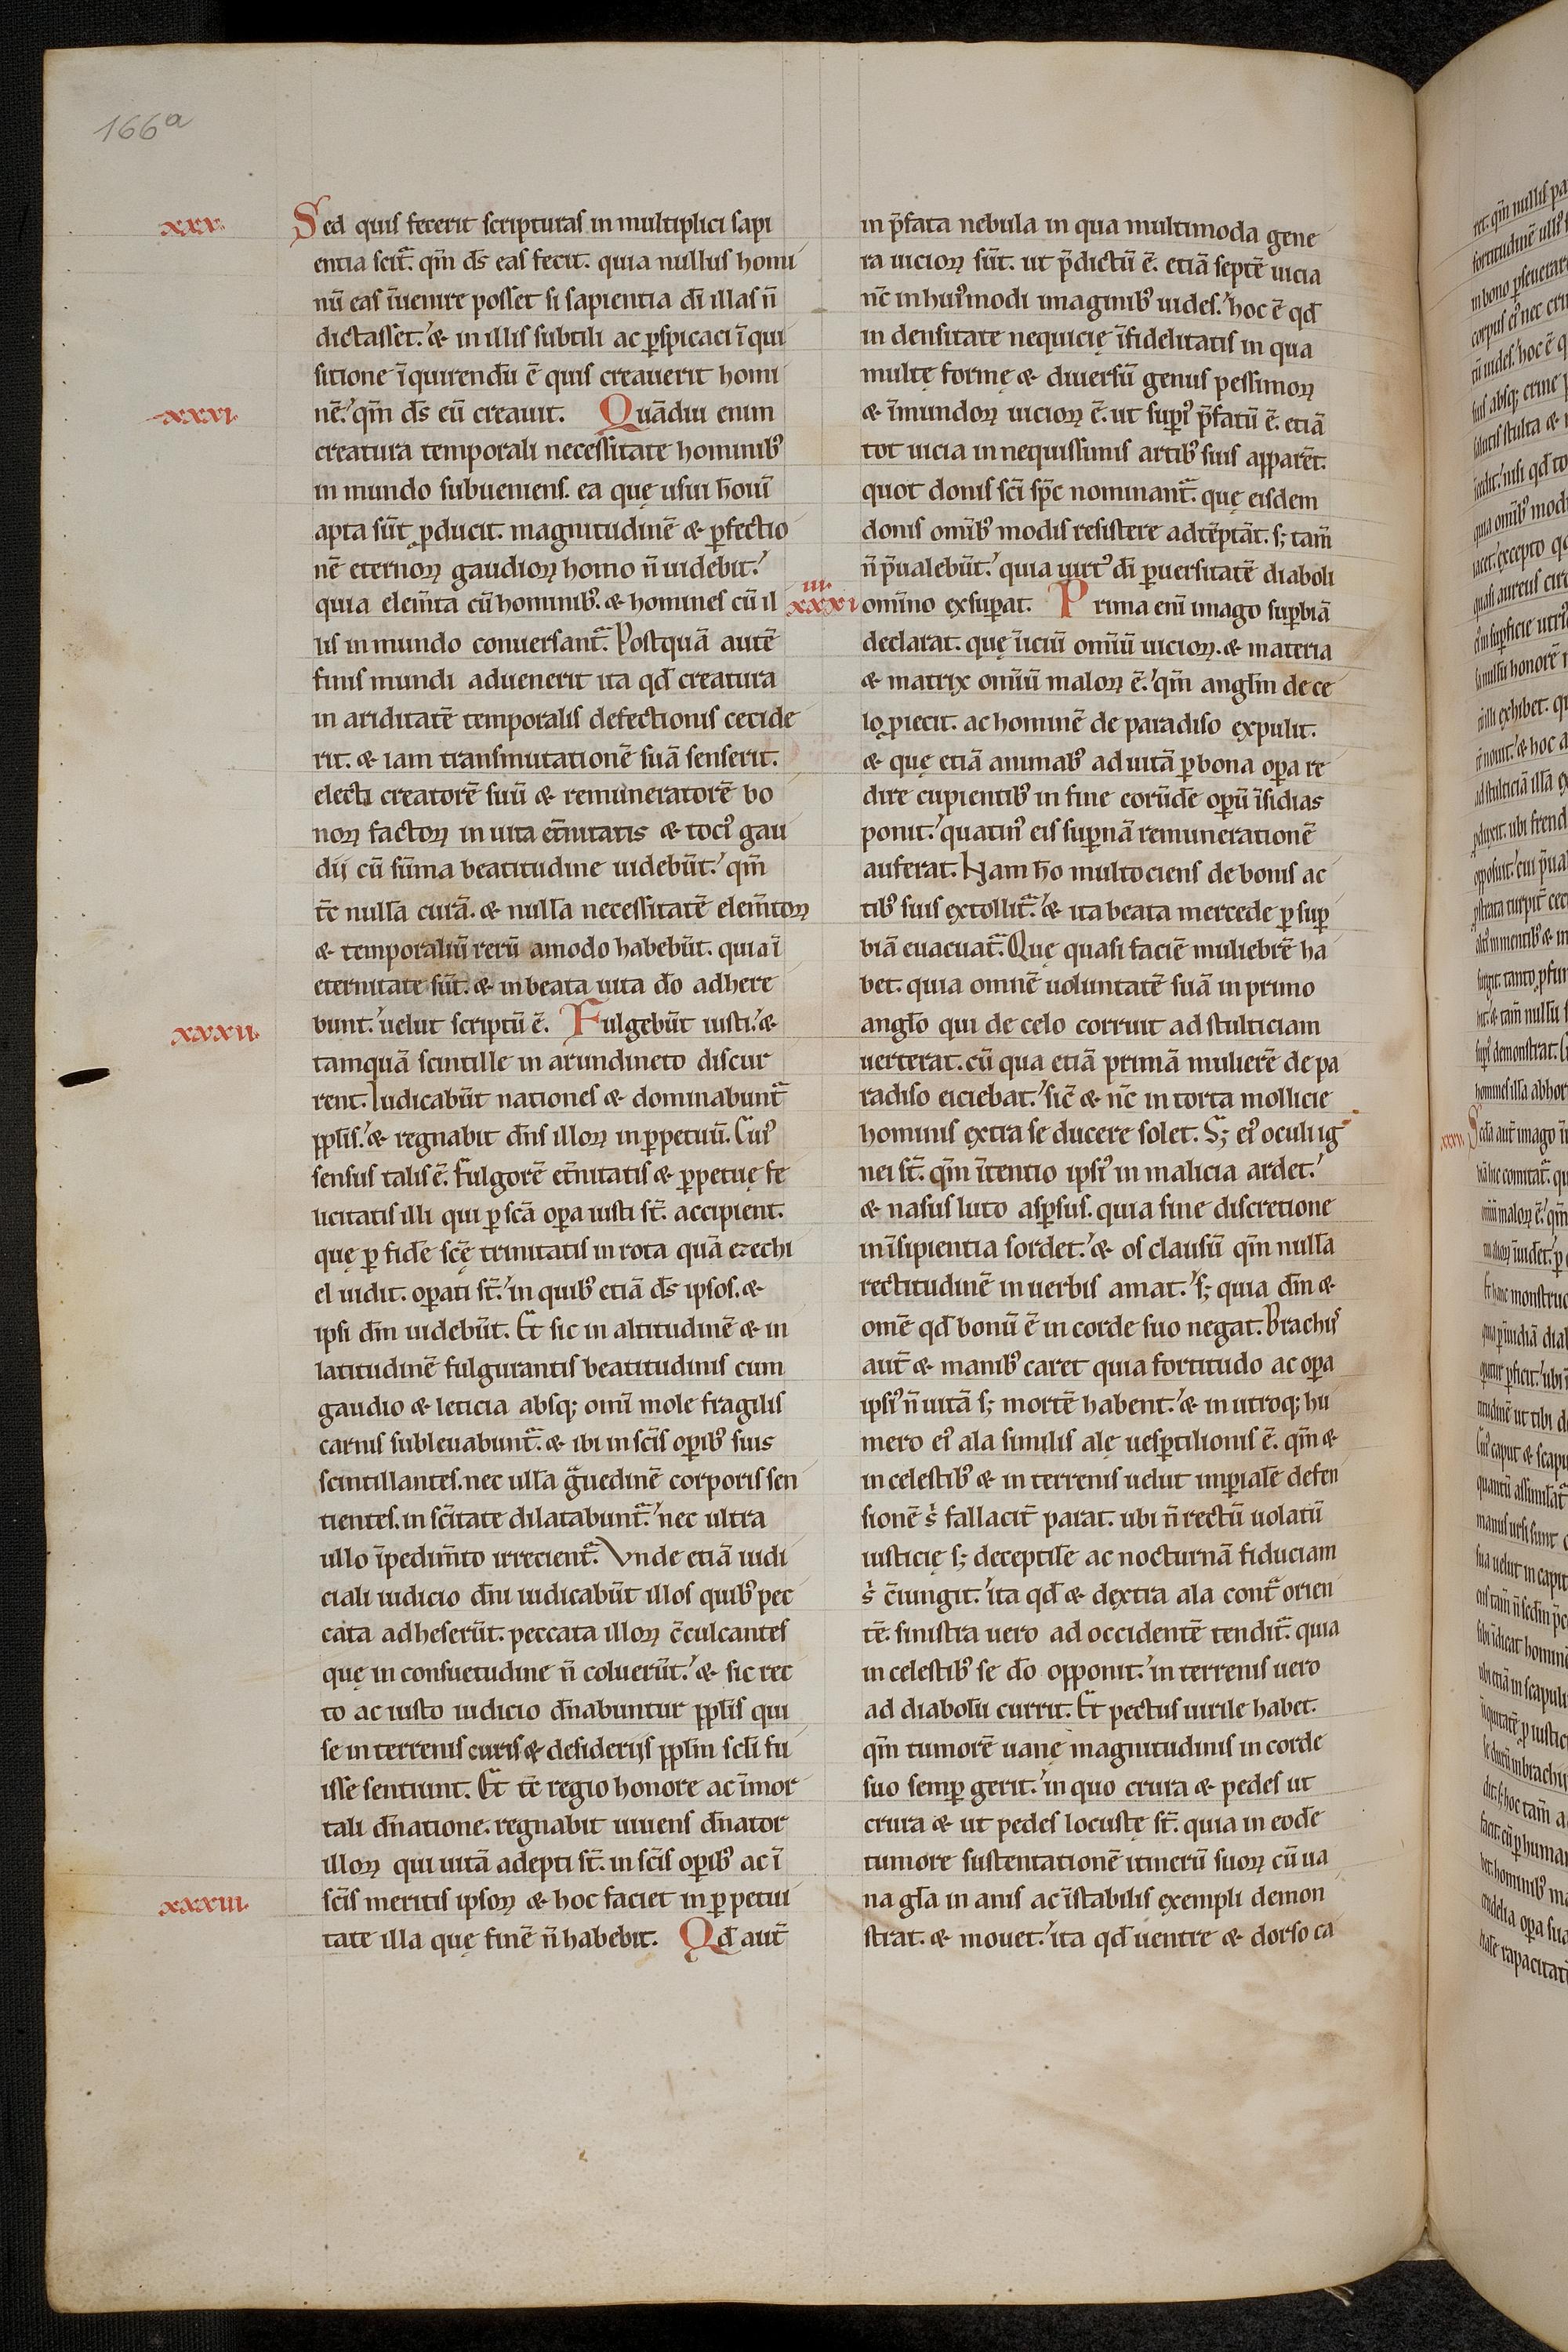 166a
xxx.
Sed quis fecerit scripturas in multiplici sapi
entia scit᷑. qm̄ ds̄ eas fecit. quia nullus homi
nū eas īuenire posset si sapientia dī illas n̄
dictasset. & in illis subtili ac ꝑspicaci īqui
sitione īquirendū ē quis creauerit homi
xxxi.
nē. qm̄ ds̄ eū creauit. Quādiu enim
creatura temporali necessitate hominibꝰ
in mundo subueniens. ea quę usui hōuī
apta sūt ꝓducit. magnitudinē & ꝑfectio
nē eternoꝝ gaudioꝝ homo n̄ uidebit.
quia elem̄ta cū hominibꝰ. & homines cū il
lis in mundo conuersant᷑. Postquā autē
finis mundi aduenerit ita qd̄ creatura
in ariditatē temporalis defectionis cecide
rit. & iam transmutationē suā senserit.
electi creatorē suū & remuneratorē bo
noꝝ factoꝝ in uita et̄nitatis & tociꝰ gau
dij cū sūma beatitudine uidebūt. qm̄
tc̄ nullā curā. & nullā necessitatē elem̄toꝝ
& temporaliū rerū amodo habebūt. quia ī
eternitate sūt. & in beata uita dō adhere
xxxii.
bunt. uelut scriptū ē. Fulgebūt iusti. &
tamquā scintille in arundineto discur
rent. Iudicabūt nationes & dominabunt᷑
pplis̄. & regnabit dn̄s illoꝝ in ꝑpetuū. Cuiꝰ
sensus talis ē. Fulgorē et̄nitatis & ꝑpetuę fe
licitatis illi qui ꝑ scā oꝑa iusti st̄. accipient.
quę ꝑ fidē scę̄ trinitatis in rota quā ezechi
el uidit. oꝑati st̄. in quibꝰ etiā ds̄ ipsos. &
ipsi dm̄ uidebūt. Et sic in altitudinē & in
latitudinē fulgurantis beatitudinis cum
gaudio & leticia absq; omī mole fragilis
carnis subleuabunt᷑. & ibi in scīs oꝑibꝰ suis
scintillantes. nec ullā g̃uedinē corporis sen
tientes. in sc̄itate dilatabunt᷑. nec ultra
ullo īpedim̄to irrecient᷑. Vnde etiā iudi
ciali iudicio dn̄i iudicabūt illos quibꝰ pec
cata adheserūt. peccata illoꝝ c̄culcantes
quę in consuetudine n̄ coluerūt. & sic rec
to ac iusto iudicio dn̄abuntur pplis̄ qui
se in terrenis curis & desiderijs pplm̄ sclī fu
isse sentiunt. Et tc̄ regio honore ac īmor
tali dn̄atione. regnabit uiuens dn̄ator
illoꝝ qui uitā adepti st̄. in scīs oꝑibꝰ ac ī
xxxiii.
scīs meritis ipsoꝝ & hoc faciet in ꝑpetui
tate illa quę finē n̄ habebit. Qd̄ aut̄
in p̄fata nebula in qua multimoda gene
ra uicioꝝ sūt. ut p̄dictū ē. etiā septē uicia
nc̄ in huiꝰmodi imaginibꝰ uides. hoc ē qd̄
in densitate nequicię īfidelitatis in qua
multę formę & diuersū genus pessimoꝝ
& īmundoꝝ uicioꝝ ē. ut supiꝰ p̄fatū ē. etiā
tot uicia in nequissimis artibꝰ suis apparēt.
quot donis scī spc̄ nominant᷑. quę eisdem
donis omībꝰ modis resistere adtēptāt. s; tam̄
n̄ p̄ualebūt. quia uirtꝰ dī ꝑuersitatē diaboli
iii.
xxxi
omīno exsuꝑat. Prima enī imago suꝑbiā
declarat. quę īiciū omīū uicioꝝ. & materia
& matrix omīū maloꝝ ē. qm̄ anglm̄ de ce
lo ꝓiecit. ac hominē de paradiso expulit.
& quę etiā animabꝰ ad uitā ꝑ bona oꝑa re
dire cupientibꝰ in fine eorūdē oꝑū īsidias
ponit. quatinꝰ eis suꝑnā remunerationē
auferat. Nam hō multociens de bonis ac
tibꝰ suis extollit᷑. & ita beata mercede ꝑ suꝑ
biā euacuat᷑. Quę quasi faciē muliebrē ha
bet. quia omnē uoluntatē suā in primo
anglō qui de celo corruit ad stulticiam
uerterat. cū qua etiā primā mulierē de pa
radiso eiciebat. sic̄ & nc̄ in torta mollicie
hominis extra se ducere solet. S; eiꝰ oculi ig
nei st̄. qm̄ ītentio ipsiꝰ in malicia ardet.
& nasus luto aspsus. quia sine discretione
in īsipientia sordet. & os clausū qm̄ nullā
rectitudinē in uerbis amat. s; quia dm̄ &
omē qd̄ bonū ē in corde suo negat. Brachijs
aut̄ & manibꝰ caret quia fortitudo ac oꝑa
ipsiꝰ n̄ uitā s; mortē habent. & in utroq; hu
mero eiꝰ ala similis alę uesꝑtilionis ē. qm̄ &
in celestibꝰ & in terrenis uelut imꝑialē defen
sionē s' fallacit̄ parat. ubi n̄ rectū uolatū
iusticię s; deceptilē ac nocturnā fiduciam
s' c̄iungit. ita qd̄ & dextra ala cont᷑ orien
tē. sinistra uero ad occidentē tendit᷑. quia
in celestibꝰ se dō opponit. in terrenis uero
ad diabolū currit. Et pectus uirile habet.
qm̄ tumorē uanę magnitudinis in corde
suo semꝑ gerit. in quo crura & pedes ut
crura & ut pedes locustę st̄. quia in eodē
tumore sustentationē itinerū suoꝝ cū ua
na glā in anis ac īstabilis exempli demon
strat. & mouet. ita qd̄ uentre & dorso ca